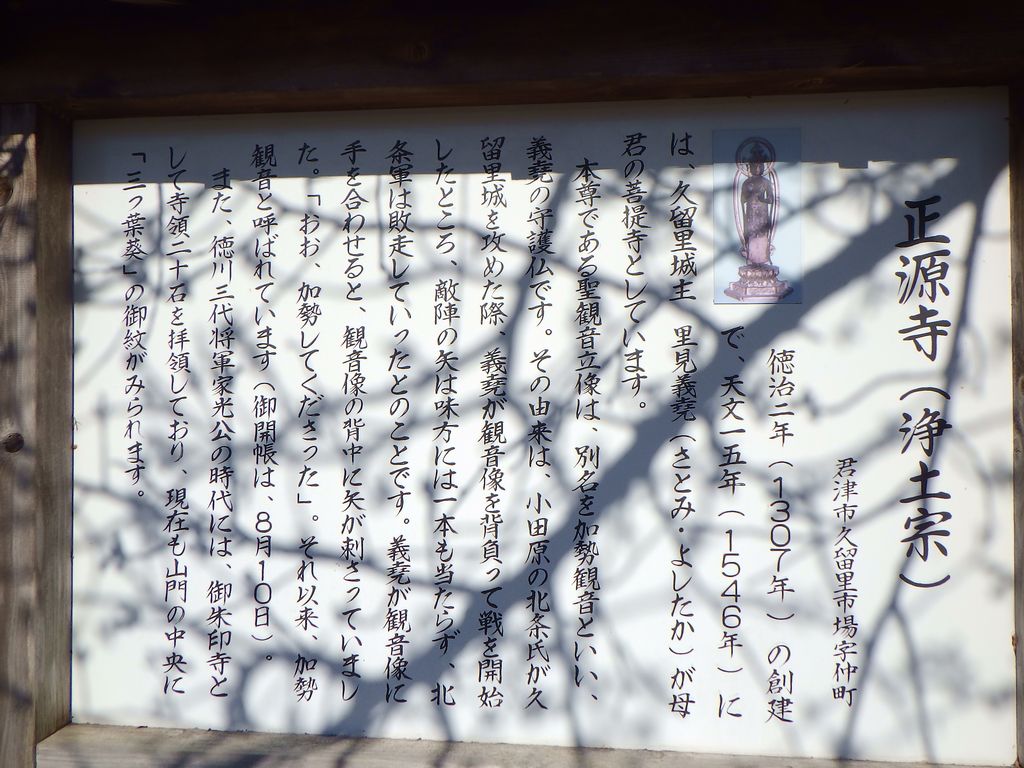 正源寺（浄土宗）
君津市久留里市場字仲町
徳治二年（1307年）の創建
で、天文一五年（1546年）に
は、久留里城主　里見義堯（さとみ・よしたか）が母
君の菩提寺としています。
本尊である聖観音立像は、別名を加勢観音といい、
義堯の守護仏です。その由来は、小田原の北条氏が久
留里城を攻めた際、義堯が観音像を背負って戦を開始
したところ、敵陣の矢は味方には一本も当たらず、北
条軍は敗走していったとのことです。義堯が観音像に
手を合わせると、観音像の背中に矢が刺さっていまし
た。「おお、加勢してくださった」。それ以来、加勢
観音と呼ばれています（御開帳は、8月10日）。
また、徳川三代将軍家光公の時代には、御朱印寺と
して寺領二十石を拝領しており、現在も山門の中央に
「三つ葉葵」の御紋がみられます。